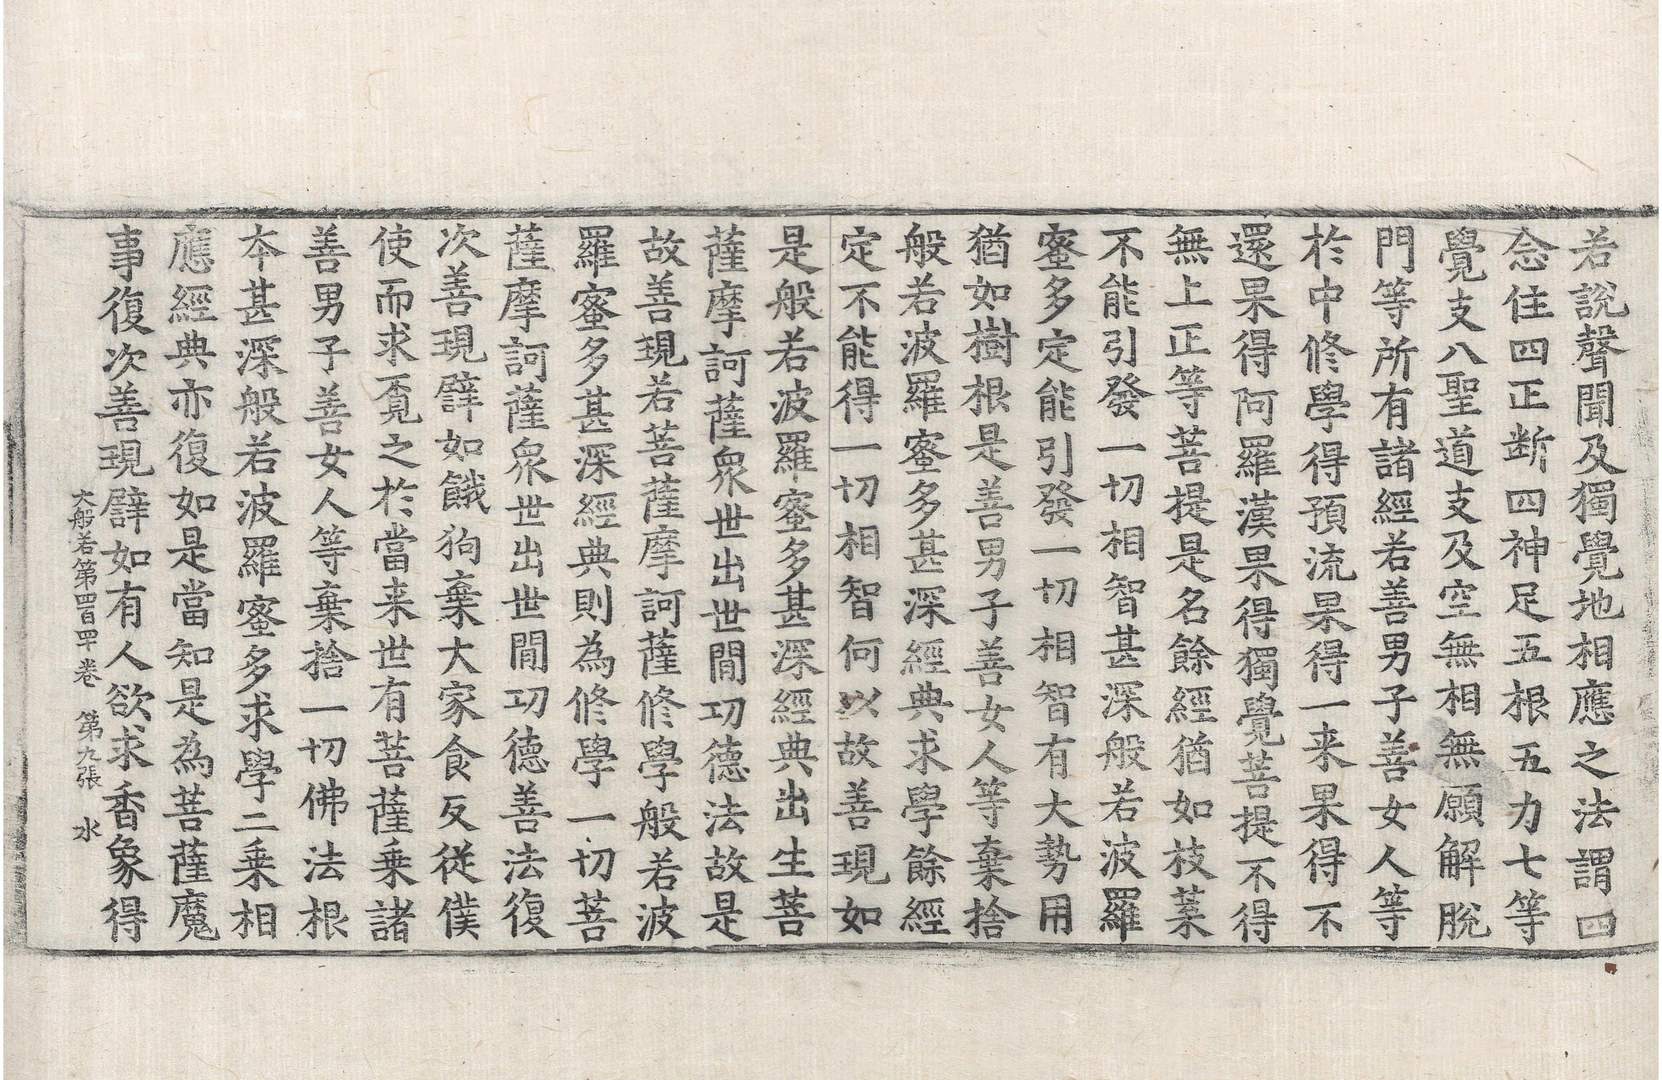 若說聲聞及獨覺地相應之法謂四
念住四正断四神足五根五力七等
覺支八聖道支及空無相無願解脫
門等所有諸經若善男子善女人等
於中修學得預流果得一来果得不
還果得阿羅漢果得獨覺菩提不得
無上正等菩提是名餘經猶如枝葉
不能引發一切相智甚深般若波羅
蜜多定能引發一切相智有大勢用
猶如樹根是善男子善女人等棄捨
般若波羅蜜多甚深經典求學餘經
定不能得一切相智何以故善現如
是般若波羅蜜多甚深經典出生菩
薩摩訶薩衆世出世間功德法故是
故善現若菩薩摩訶薩修學般若波
羅蜜多甚深經典則為修學一切菩
薩摩訶薩衆世出世間功德善法復
次善現譬如餓狗棄大家食反從僕
使而求覓之於當来世有菩薩乘諸
善男子善女人等棄捨一切佛法根
本甚深般若波羅蜜多求學二乘相
應經典亦復如是當知是為菩薩魔
事復次善現譬如有人欲求香象得
大般若第四百四十卷 第九張 水